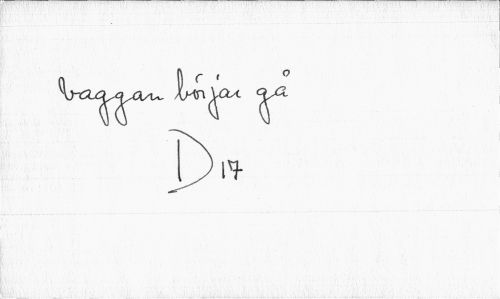 Vaggan börjar gå
D 17